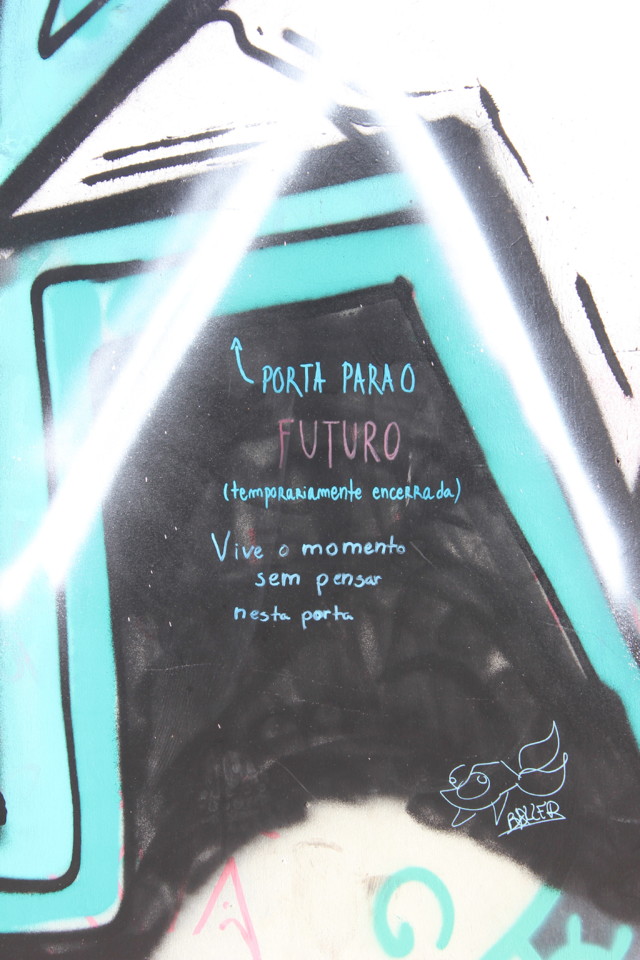 PORTA PARA O
FUTURO
(temporariamente encerrada)
Vive o momento
sem pensar
nesta porta
BALLER